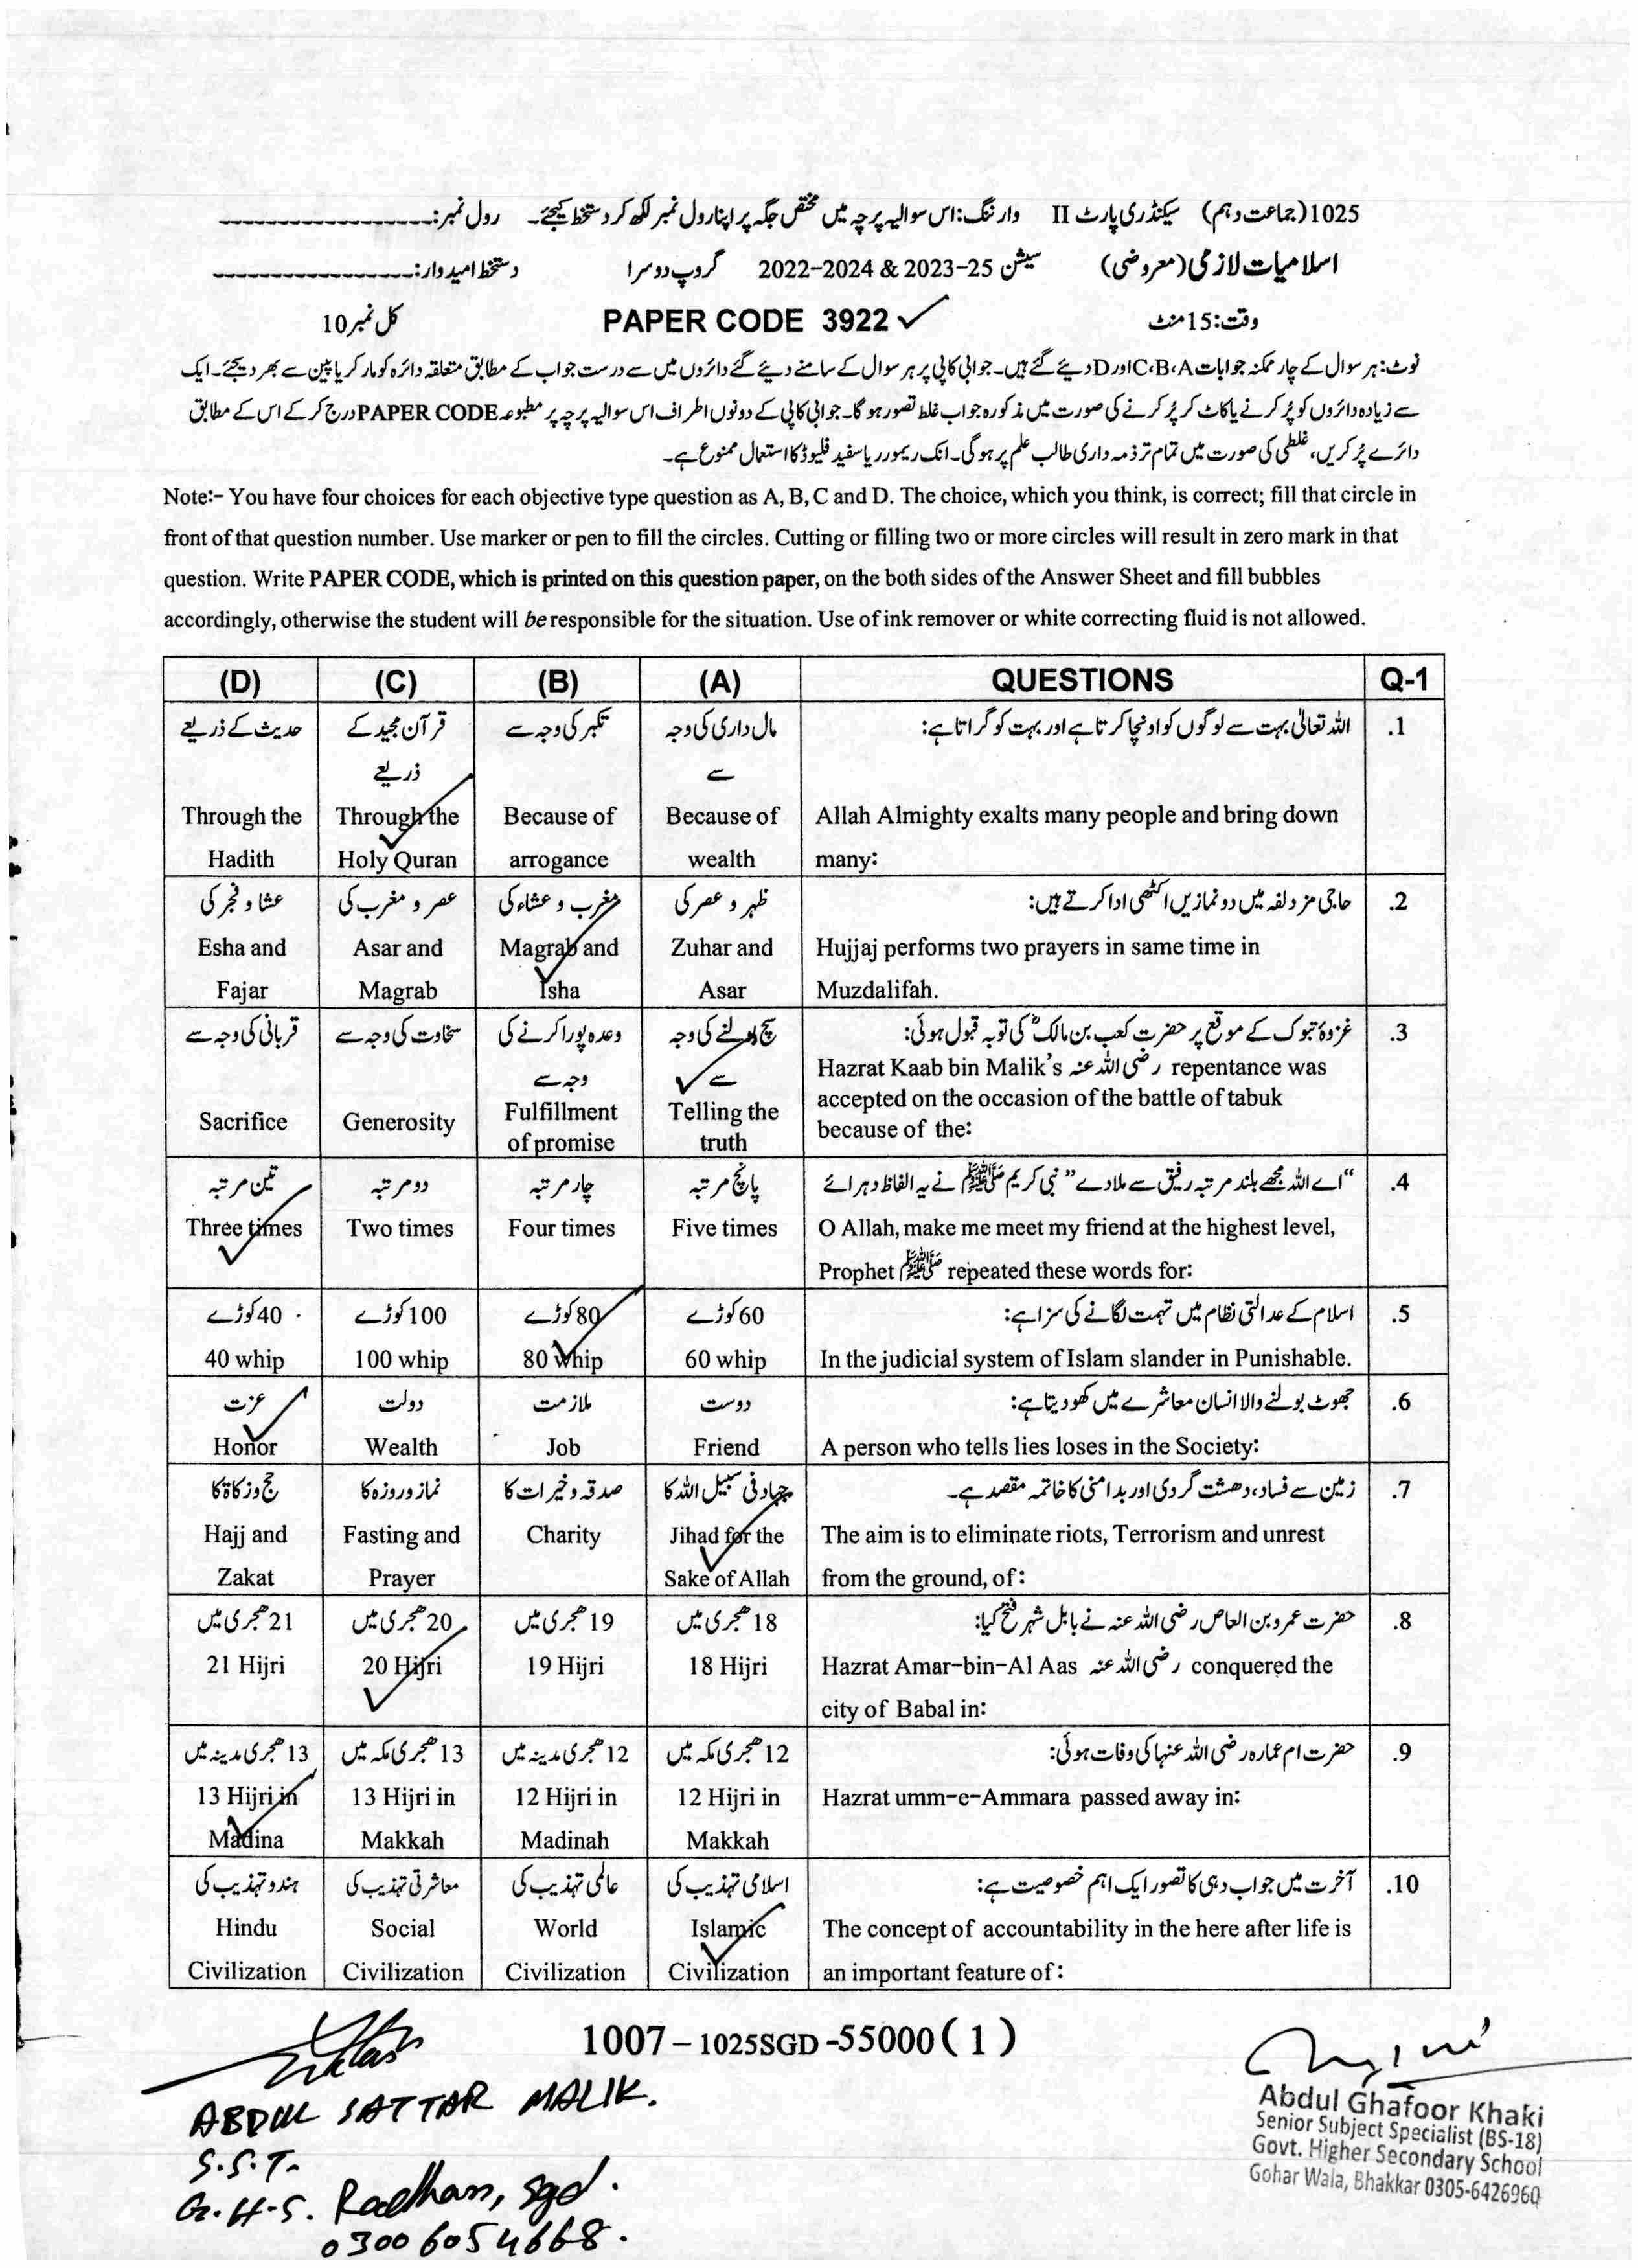 1025(جماعت دہم) سیکنڈری پارٹ II وارننگ:اس سوالیہ پرچہ میں مختص جگہ پر اپنا رول نمبر لکھ کر دستخط کیجئے۔ رول نمبر:------------------
اسلامیات لازمی(معروضی) سیشن 25-2023 & 2024-2022 گروپ دوسرا دستخط امیدوار:------------------
وقت:15منٹ PAPER CODE 3922 کل نمبر10
نوٹ:ہر سوال کے چار ممکنہ جوابات C،B،A اور D دیئے گئے ہیں۔ جوابی کاپی پر ہر سوال کے سامنے دیئے گئے دائروں میں سے درست جواب کے مطابق متعلقہ دائرہ کو مارکر یا پین سے بھر دیجئے۔ ایک
سے زیادہ دائروں کو پُر کرنے یا کاٹ کر پُر کرنے کی صورت میں مذکورہ جواب غلط تصور ہو گا۔ جوابی کاپی کے دونوں اطراف اس سوالیہ پرچہ پر مطبوعہ PAPER CODE درج کر کے اس کے مطابق
دائرے پُر کریں، غلطی کی صورت میں تمام تر ذمہ داری طالب علم پر ہو گی۔ انک ریموور یا سفید فلیوڈ کا استعمال ممنوع ہے۔
Note:- You have four choices for each objective type question as A, B, C and D. The choice, which you think, is correct; fill that circle in
front of that question number. Use marker or pen to fill the circles. Cutting or filling two or more circles will result in zero mark in that
question. Write PAPER CODE, which is printed on this question paper, on the both sides of the Answer Sheet and fill bubbles
accordingly, otherwise the student will be responsible for the situation. Use of ink remover or white correcting fluid is not allowed.
(D) (C) (B) (A) QUESTIONS Q-1
.1 اللہ تعالٰی بہت سے لوگوں کو اونچا کرتا ہے اور بہت کو گراتا ہے: مال داری کی وجہ تکبر کی وجہ سے قرآن مجید کے حدیث کے ذریعے
سے ذریعے
Through the Through the Because of Because of Allah Almighty exalts many people and bring down
Hadith Holy Quran arrogance wealth many:
.2 حاجی مزدلفہ میں دو نمازیں اکٹھی ادا کرتے ہیں: ظہر و عصر کی مغرب و عشاء کی عصر و مغرب کی عشا و فجر کی
Esha and Asar and Magrab and Zuhar and Hujjaj performs two prayers in same time in
Fajar Magrab Isha Asar Muzdalifah.
.3 غزوۂ تبوک کے موقع پر حضرت کعب بن مالکؓ کی توبہ قبول ہوئی: سچ بولنے کی وجہ وعدہ پورا کرنے کی سخاوت کی وجہ سے قربانی کی وجہ سے
سے وجہ سے
Hazrat Kaab bin Malik's رضی اللہ عنہ repentance was
Sacrifice Generosity Fulfillment Telling the accepted on the occasion of the battle of tabuk
of promise truth because of the:
.4 “اے اللہ مجھے بلند مرتبہ رفیق سے ملا دے” نبی کریم ﷺ نے یہ الفاظ دہرائے پانچ مرتبہ چار مرتبہ دو مرتبہ تین مرتبہ
Three times Two times Four times Five times O Allah, make me meet my friend at the highest level,
Prophet ﷺ repeated these words for:
.5 اسلام کے عدالتی نظام میں تہمت لگانے کی سزا ہے: 60کوڑے 80کوڑے 100کوڑے 40کوڑے
40 whip 100 whip 80 whip 60 whip In the judicial system of Islam slander in Punishable.
.6 جھوٹ بولنے والا انسان معاشرے میں کھو دیتا ہے: دوست ملازمت دولت عزت
Honor Wealth Job Friend A person who tells lies loses in the Society:
.7 زمین سے فساد، دھشت گردی اور بدامنی کا خاتمہ مقصد ہے۔ جہاد فی سبیل اللہ کا صدقہ و خیرات کا نماز و روزہ کا حج و زکاۃ کا
Hajj and Fasting and Charity Jihad for the The aim is to eliminate riots, Terrorism and unrest
Zakat Prayer Sake of Allah from the ground, of:
.8 حضرت عمرو بن العاص رضی اللہ عنہ نے بابل شہر فتح کیا: 18ھجری میں 19ھجری میں 20ھجری میں 21ھجری میں
21 Hijri 20 Hijri 19 Hijri 18 Hijri Hazrat Amar-bin-Al Aas رضی اللہ عنہ conquered the
city of Babal in:
.9 حضرت ام عمارہ رضی اللہ عنہا کی وفات ہوئی: 12ھجری مکہ میں 12ھجری مدینہ میں 13ھجری مکہ میں 13ھجری مدینہ میں
13 Hijri in 13 Hijri in 12 Hijri in 12 Hijri in Hazrat umm-e-Ammara passed away in:
Madina Makkah Madinah Makkah
.10 آخرت میں جواب دہی کا تصور ایک اہم خصوصیت ہے: اسلامی تہذیب کی عالمی تہذیب کی معاشرتی تہذیب کی ہندو تہذیب کی
Hindu Social World Islamic The concept of accountability in the here after life is
Civilization Civilization Civilization Civilization an important feature of:
1007-1025SGD-55000(1)
ABDUL SATTAR MALIK.
S.S.T.
G.H.S. Radhan, Sgd.
03006054668.
Abdul Ghafoor Khaki
Senior Subject Specialist (BS-18)
Govt. Higher Secondary School
Gohar Wala, Bhakkar 0305-6426960